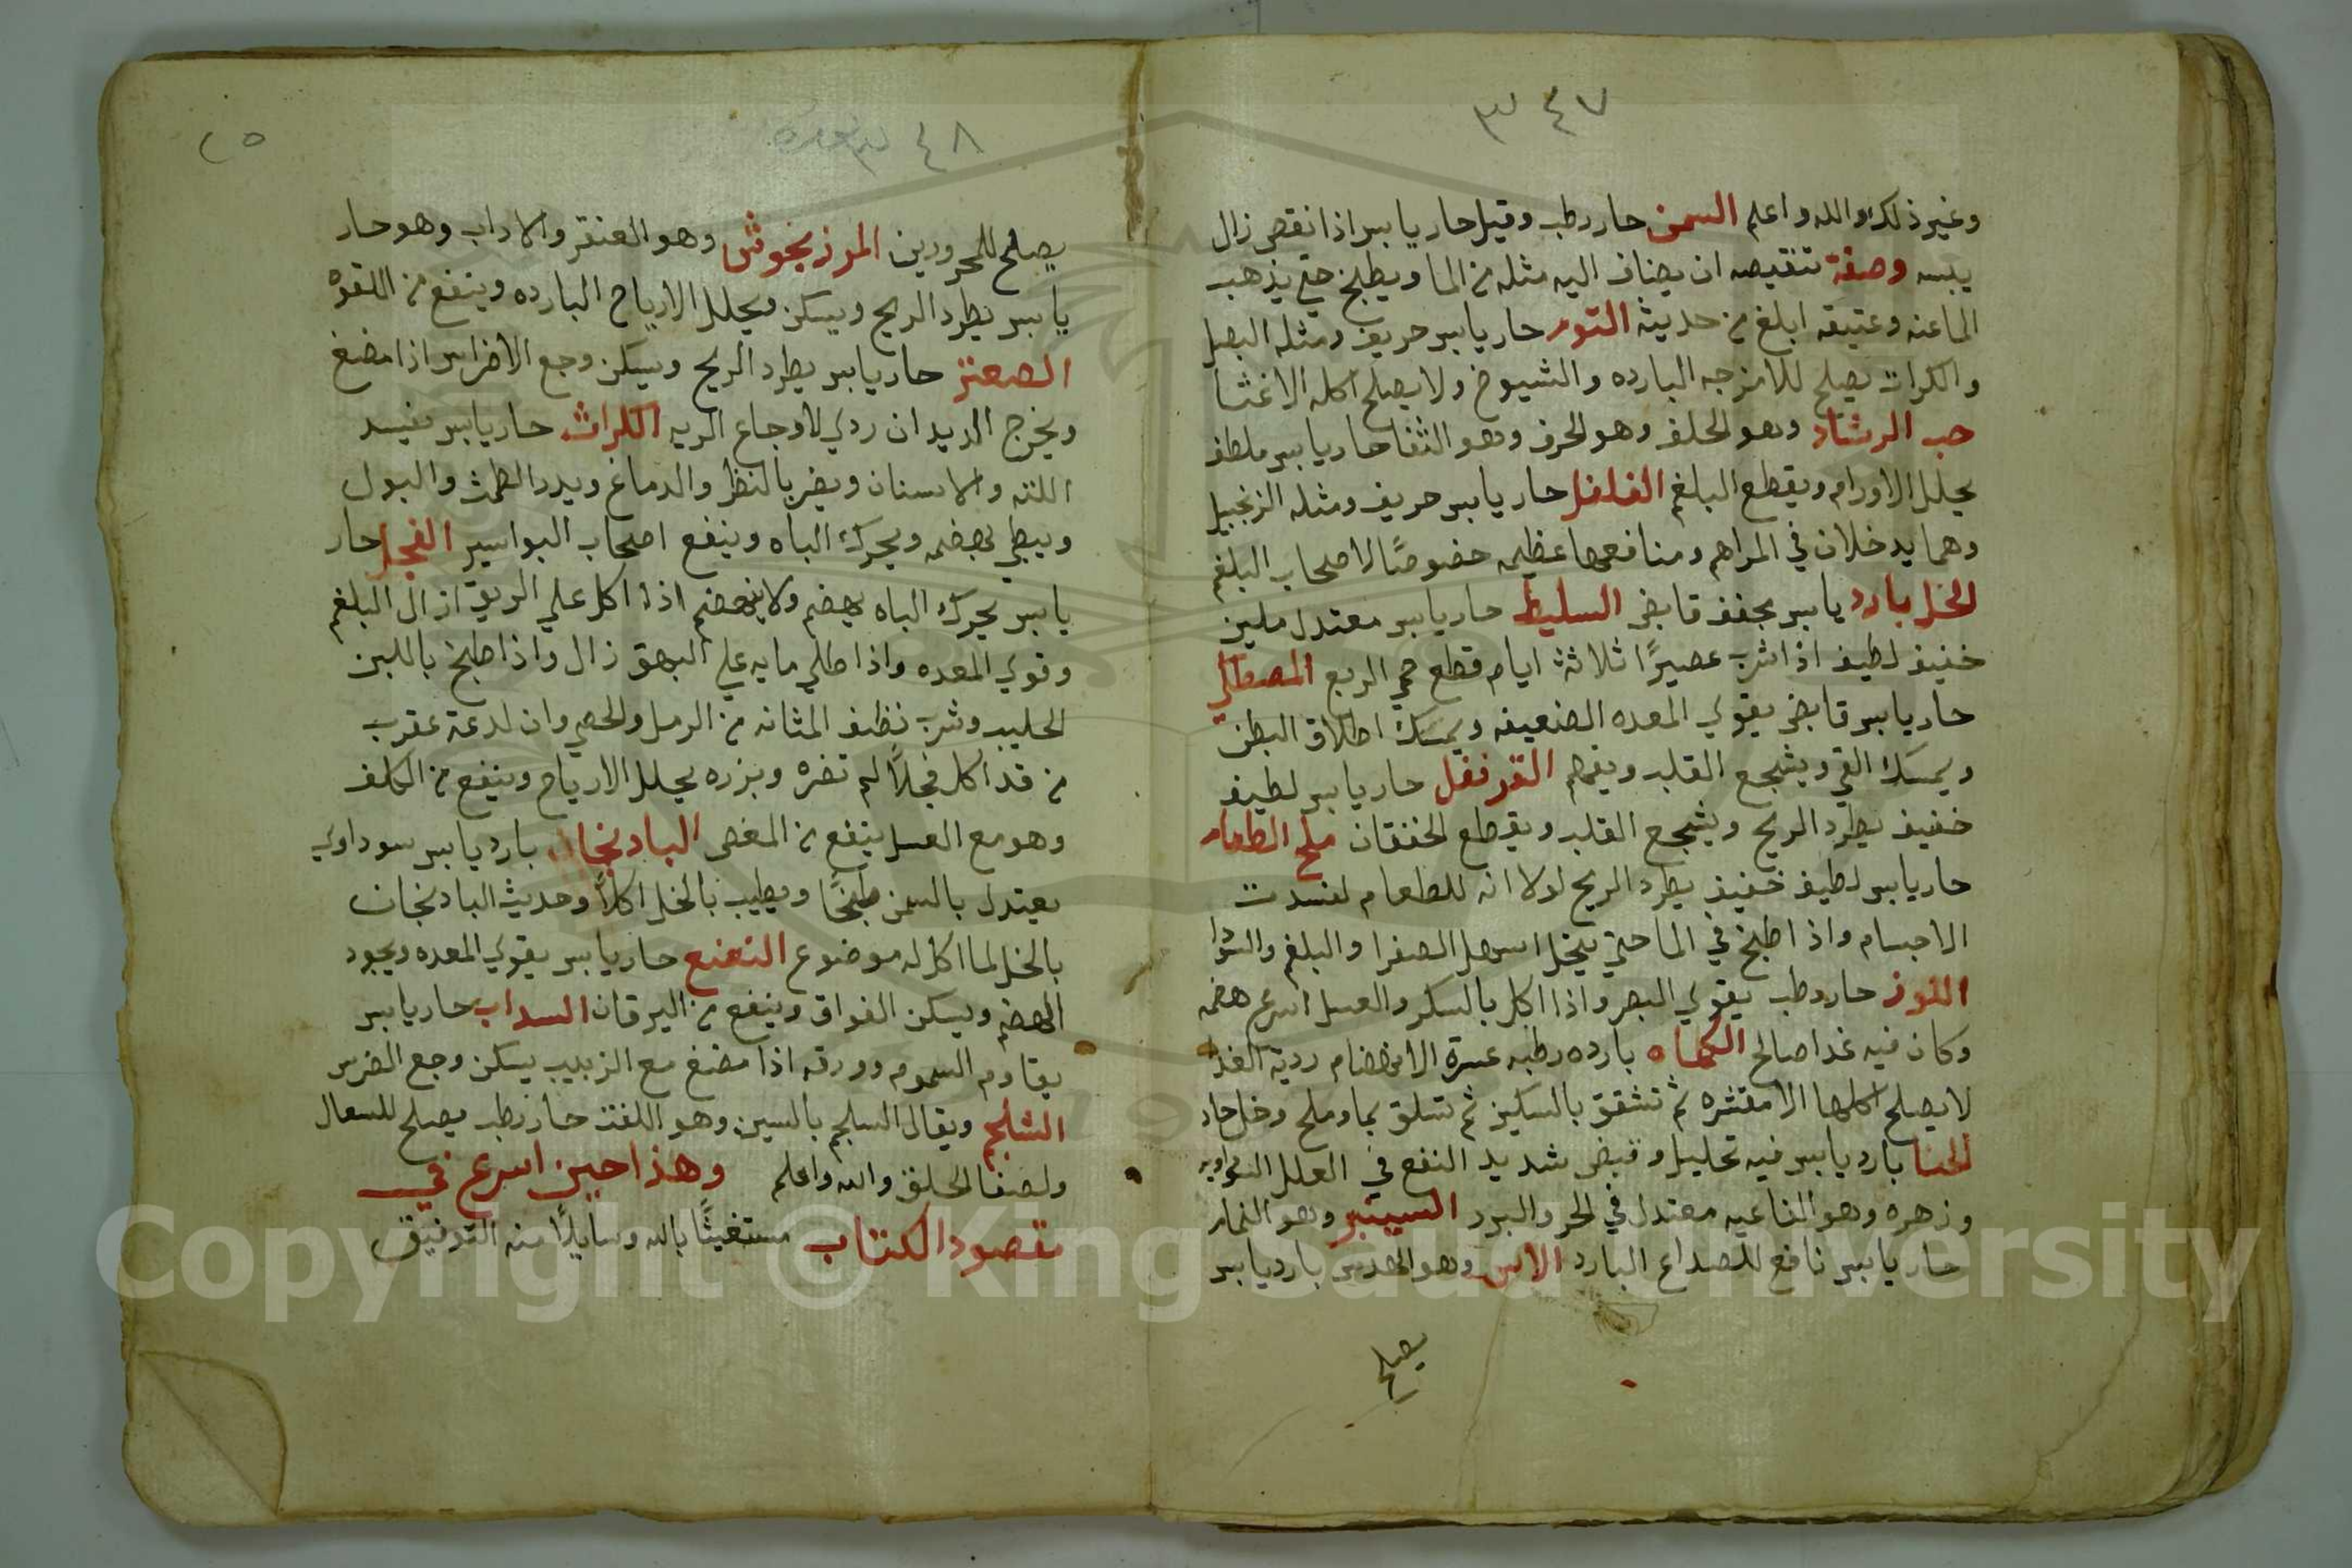 ٤٧ ٣
وغير ذلك والله واعلم السمن حار رطب وقيل حار يابس اذا نقص زال
يبسه وصفة تنقيصه ان يضاف اليه مثله من الما ويطبخ حتي يذهب
الما عنه وعتيقه ابلغ من حديثه الثوم حار يابس حريف ومثله البصل
والكراث يصلح للامزجه البارده والشيوخ ولا يصلح اكله الا غثيا
حب الرشاد وهو الحلف وهو الحرف وهو الثفا حار يابس ملطف
يحلل الاورام ويقطع البلغم الفلفل حار يابس حريف ومثله الزنجبيل
وهما يدخلان في المراهم ومنافعهما عظيمه خصوصًا لاصحاب البلغم
الخل بارد يابس يجفف قابض السليط حار يابس معتدل ملين
خفيف لطيف اذا شرب عصيرًا ثلاثة ايام قطع حمي الربع المصطكي
حار يابس قابض يقوي المعده الضعيفه ويمسك اطلاق البطن
ويمسك القي ويشجع القلب ويهضم القرنفل حار يابس لطيف
خفيف يطرد الريح ويشجع القلب ويقطع الخفقان ملح الطعام
حار يابس لطيف خفيف يطرد الريح لولا انه للطعام لفسدت
الاجسام واذا طبخ في الما حتي ينحل اسهل الصفرا والبلغم والسودا
اللوز حار رطب يقوي البصر واذا اكل بالسكر والعسل اسرع هضمه
وكان فيه غدا صالح الكماه بارده رطبه عسرة الانهضام ردية الغذا
لا يصلح اكلها الا مقشره ثم تشقق بالسكين ثم تسلق بما وملح وخل حاد
الحنا بارد يابس فيه تحليل وقبض شديد النفع في العلل السوداويه
وزهره وهو الفاغيه معتدل في الحر والبرد السيسنبر وهو النمار
حار يابس نافع للصداع البارد الاس وهو الهدس بارد يابس
يصلح
٤٨ ٣
٢٥
يصلح للمحرورين المرزنجوش وهو العنقر والاداب وهو حار
يابس يطرد الريح ويسكن ويحلل الارياح البارده وينفع من اللقوه
الصعتر حار يابس يطرد الريح ويسكن وجع الاضراس اذا مضغ
ويخرج الديدان ردي لاوجاع الريه الكراث حار يابس يفسد
اللثه والاسنان ويضر بالنظر والدماغ ويدر الطمث والبول
ويبطي بهضمه ويحرك الباه وينفع اصحاب البواسير الفجل حار
يابس يحرك الباه يهضم ولا ينهضم اذا اكل علي الريق ازال البلغم
وقوي المعده واذا طلي مايه علي البهق زال واذا طبخ باللبن
الحليب وشرب نظف المثانه من الرمل والحصي وان لدغة عقرب
من قد اكل فجلاً لم تضره وبزره يحلل الارياح وينفع من الكلف
وهو مع العسل ينفع من المغص البادنجان بارد يابس سوداوي
يعتدل بالسمن طبخًا ويطيب بالخل اكلاً وحديث البادنجان
بالخل لما اكل له موضوع النعنع حار يابس يقوي المعده ويجود
الهضم ويسكن الفواق وينفع من اليرقان السداب حار يابس
يقاوم السموم وورقه اذا مضغ مع الزبيب يسكن وجع الضرس
الشلجم ويقال السلجم بالسين وهو اللفت حار رطب يصلح للسعال
ولصفا الحلق والله واعلم وهذا حين اسرع في
مقصود الكتاب مستغيثًا بالله وسايلاً منه التوفيق
Copyright © King Saud University